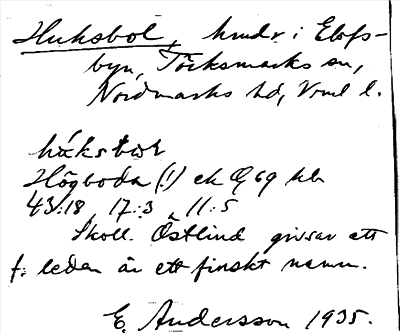 Huksbol, hmdr i Elofs-
byn, Töcksmarks sn,
Nordmarks hd, Vrml l.
Högboda (!) ek Q, 69
43:18 17:3 11:5
Skoll. Östlind gissar att
f. leden är ett finskt namn.
E. Andersson 1935.